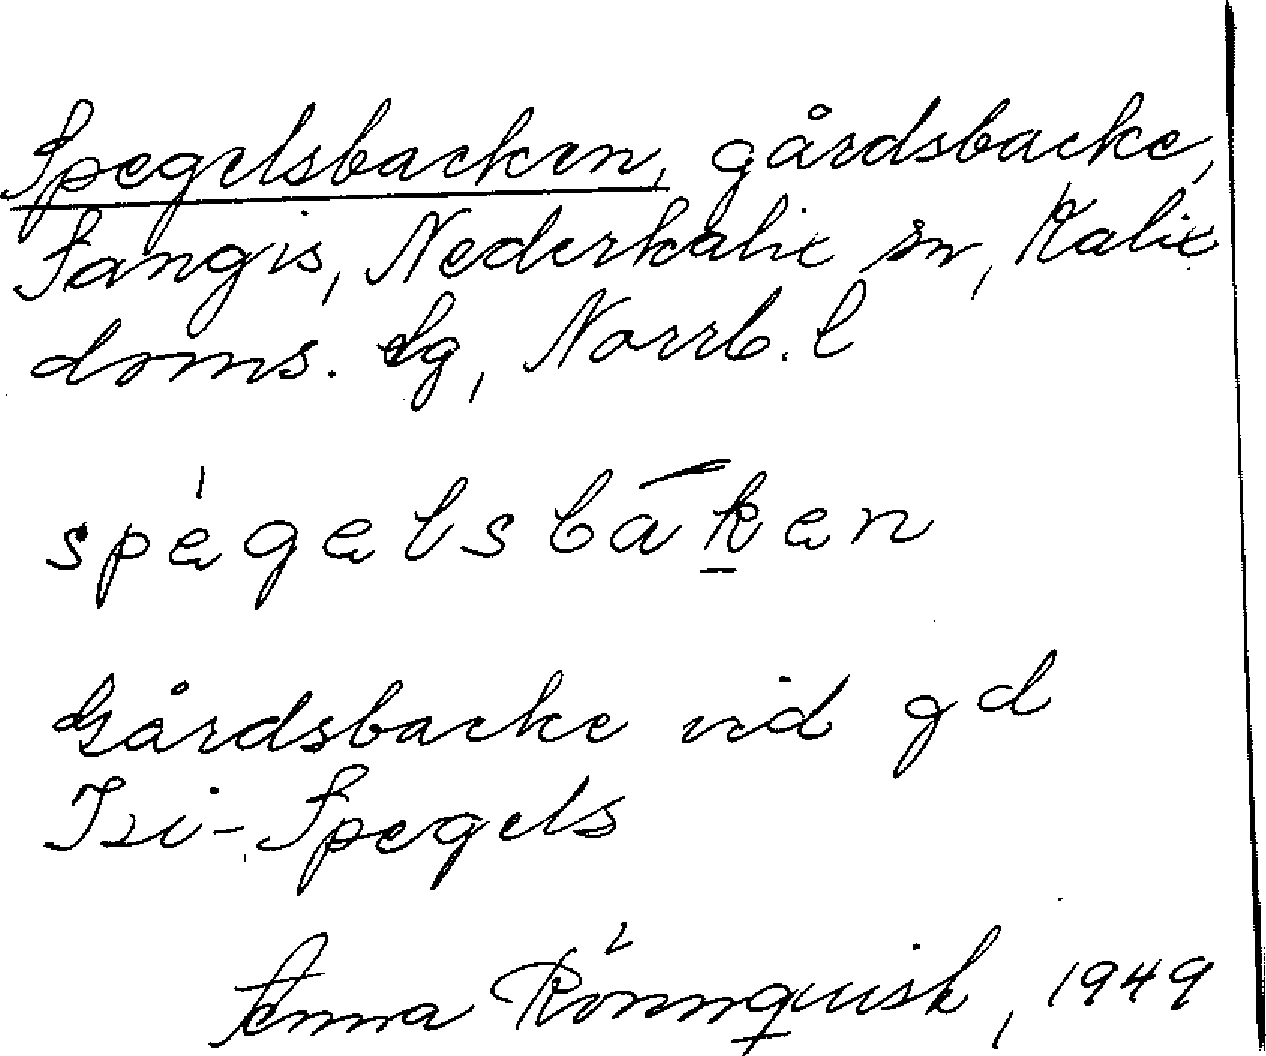 Spegelsbacken, gårdsbacke,
Sangis, Nederkalix sn, Kalix
doms. sg, Norrb. l
Gårdsbacke vid gd
Isi-Spegels
Anna Rönnquist, 1949